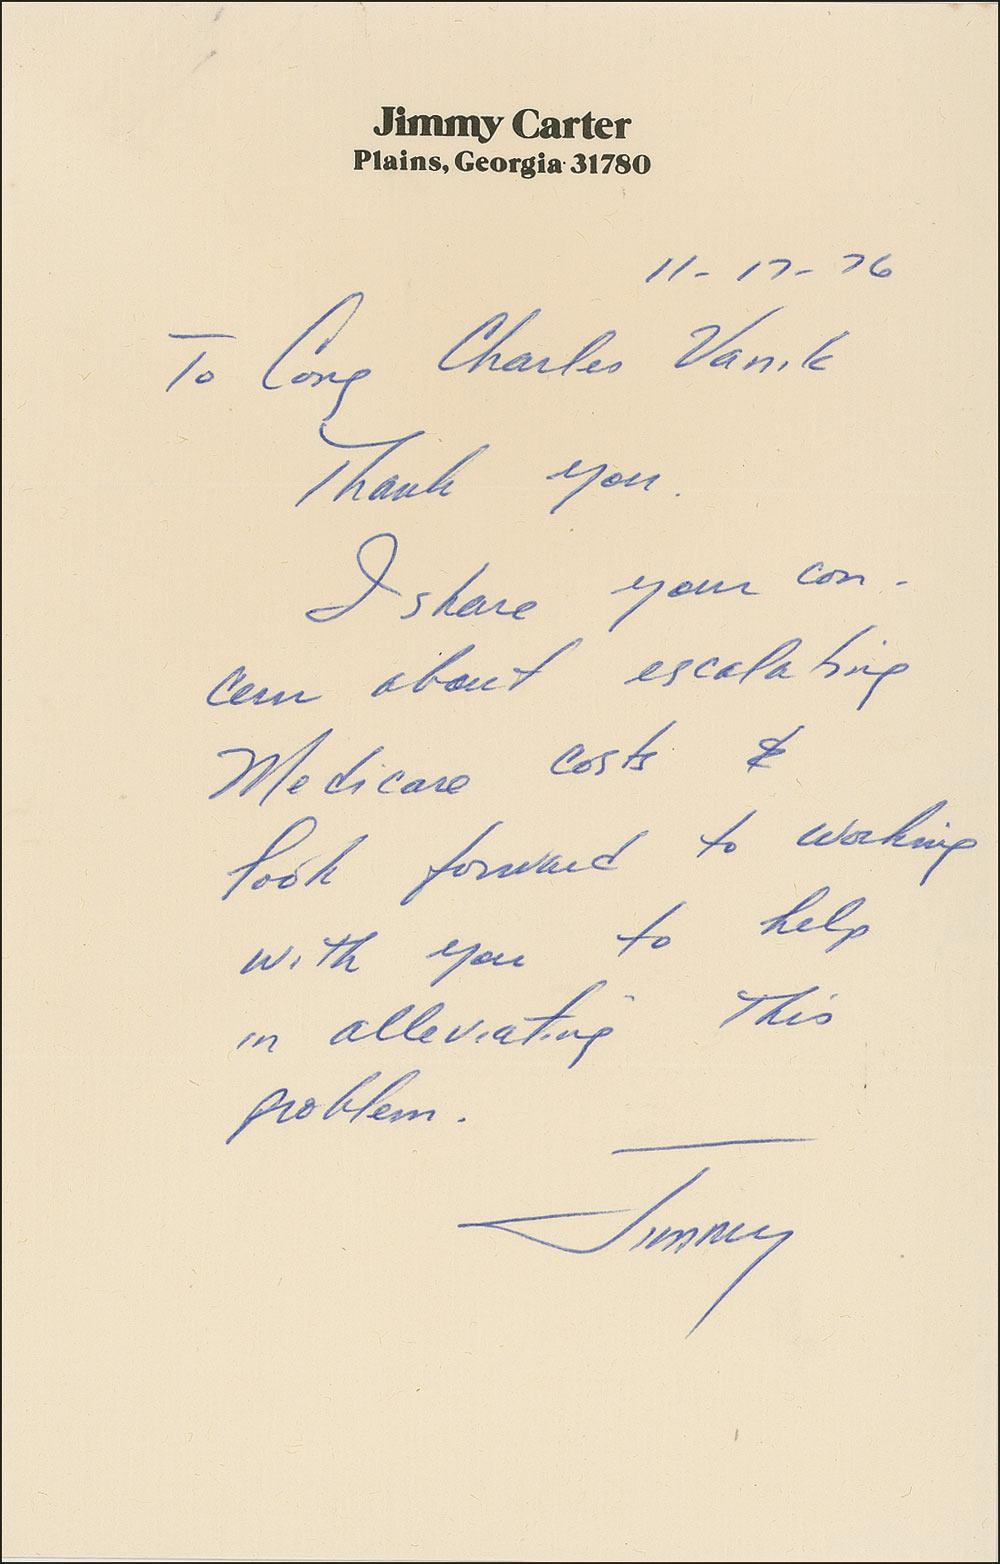 Jimmy Carter
Plains, Georgia 31780
11-17-76
To Cong Charles Vanik
Thank you.
I share your con-
cern about escalating
Medicare costs &
look forward to working
with you to help
in alleviating this
problem.
Jimmy